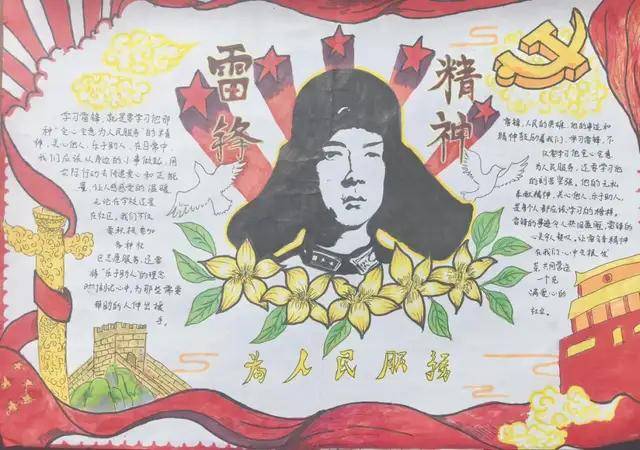 雷锋
精神
学习雷锋,就是要学习他那
种"全心全意为人民服务"的
是关心他人、乐于助人。在日常中,
我们应该从身边的小事做起,用
实际行动去传递爱心和正能
量,让人感受到温暖
无论在学校还是
在社区,我们可以
积极参加
各种
志愿服务,还要
将"乐于助人"的理念
心中,为那些需要
帮助的人伸出援
手。
雷锋,人民的英雄,他的事迹和
精神鼓励着我们。学习雷锋,不
仅要学习他全心全意
为人民服务,还要学习他
的刻苦坚强。他的无私
奉献精神,关心他人,乐于助人,
是每个人都应该学习的榜样。
雷锋的事迹令人热泪盈眶,雷锋的
心灵令人敬仰。让雷锋精神
在我们心中
共同营造
一个充
满爱心的
社会。
为人民服务